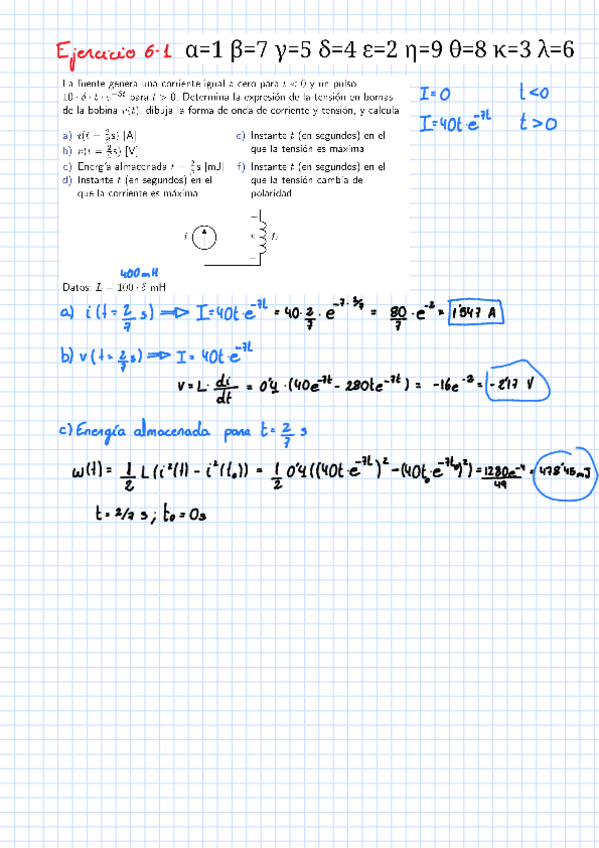 Ejercicio 6-1 α=1 β=7 γ=5 δ=4 ε=2 η=9 θ=8 κ=3 λ=6
La fuente genera una corriente igual a cero para t < 0 y un pulso
10 · δ · t · e^-βt para t > 0. Determina la expresión de la tensión en bornas
de la bobina v(t), dibuja la forma de onda de corriente y tensión, y calcula
I=0 t<0
I=40t·e^-7t t>0
a) i(t = 2/β s) [A]
b) v(t = 2/β s) [V]
c) Energía almacenada t = 2/β s [mJ]
d) Instante t (en segundos) en el
que la corriente es máxima
e) Instante t (en segundos) en el
que la tensión es máxima
f) Instante t (en segundos) en el
que la tensión cambia de
polaridad
i v L
400mH
Datos: L = 100 · δ mH
a) i(t=2/7 s) ⟹ I=40t·e^-7t = 40·2/7·e^-7·2/7 = 80/7·e^-2 = 1'547 A
b) v(t=2/7 s) ⟹ I = 40t·e^-7t
v=L·di/dt = 0'4·(40e^-7t - 280te^-7t) = -16e^-2 = -2'17 V
c) Energía almacenada para t=2/7 s
w(t) = 1/2 L(i²(t) - i²(t₀)) = 1/2 0'4((40t·e^-7t)² - (40t₀·e^-7t₀)²) = 1280e^-4/49 = 478'45mJ
t=2/7 s; t₀=0s